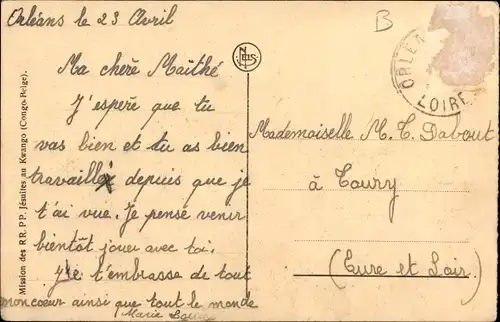 Orléans le 23 Avril
Ma chère Maïthé
J'espère que tu
vas bien et tu as bien
travaillé depuis que je
t'ai vue. Je pense venir
bientôt jouer avec toi.
Je t'embrasse de tout
mon coeur ainsi que tout le monde
Marie
Mission des RR. PP. Jésuites au Kwango (Congo-Belge).
B
ORLÉA
LOIRE
Mademoiselle M. T. Dabout
à Toury
(Eure et Loir)